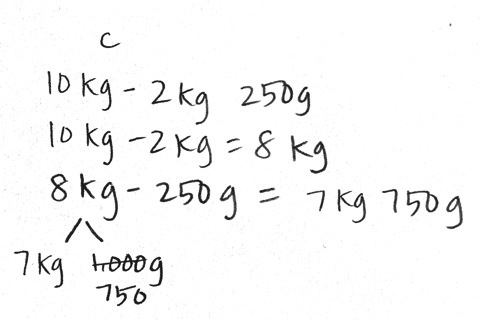 c
10 kg - 2 kg 250g
10 kg - 2 kg = 8 kg
8 kg - 250 g = 7 kg 750 g
7 kg 1,000g
750